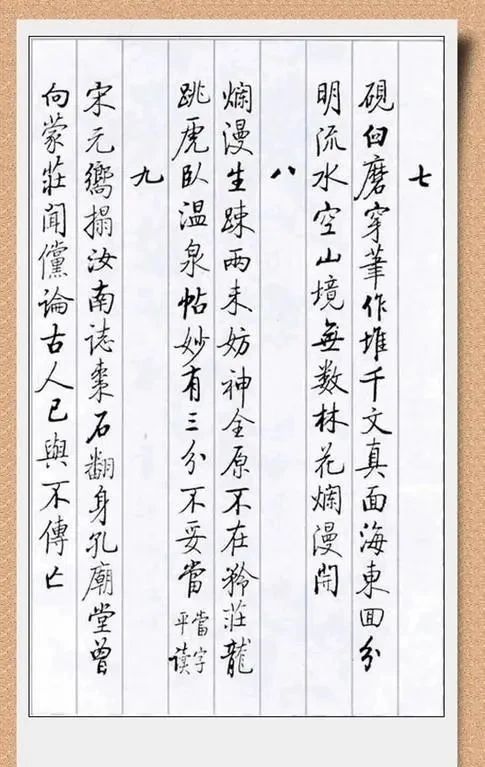 七
硯臼磨穿筆作堆千文真面海東回分
明流水空山境無數林花爛漫開
八
爛漫生踈兩未妨神全原不在矜莊龍
跳虎臥温泉帖妙有三分不妥當當字平读
九
宋元嚮搨汝南誌棗石翻身孔廟堂曾
向蒙莊聞儻論古人已與不傳亡